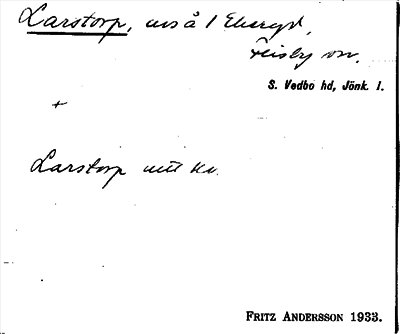 Larstorp, avs å 1 Ekeryd,
Frisby sn.
S. Vedbo hd, Jönk. l.
+
Larstorp utt kv.
FRITZ ANDERSSON 1933.